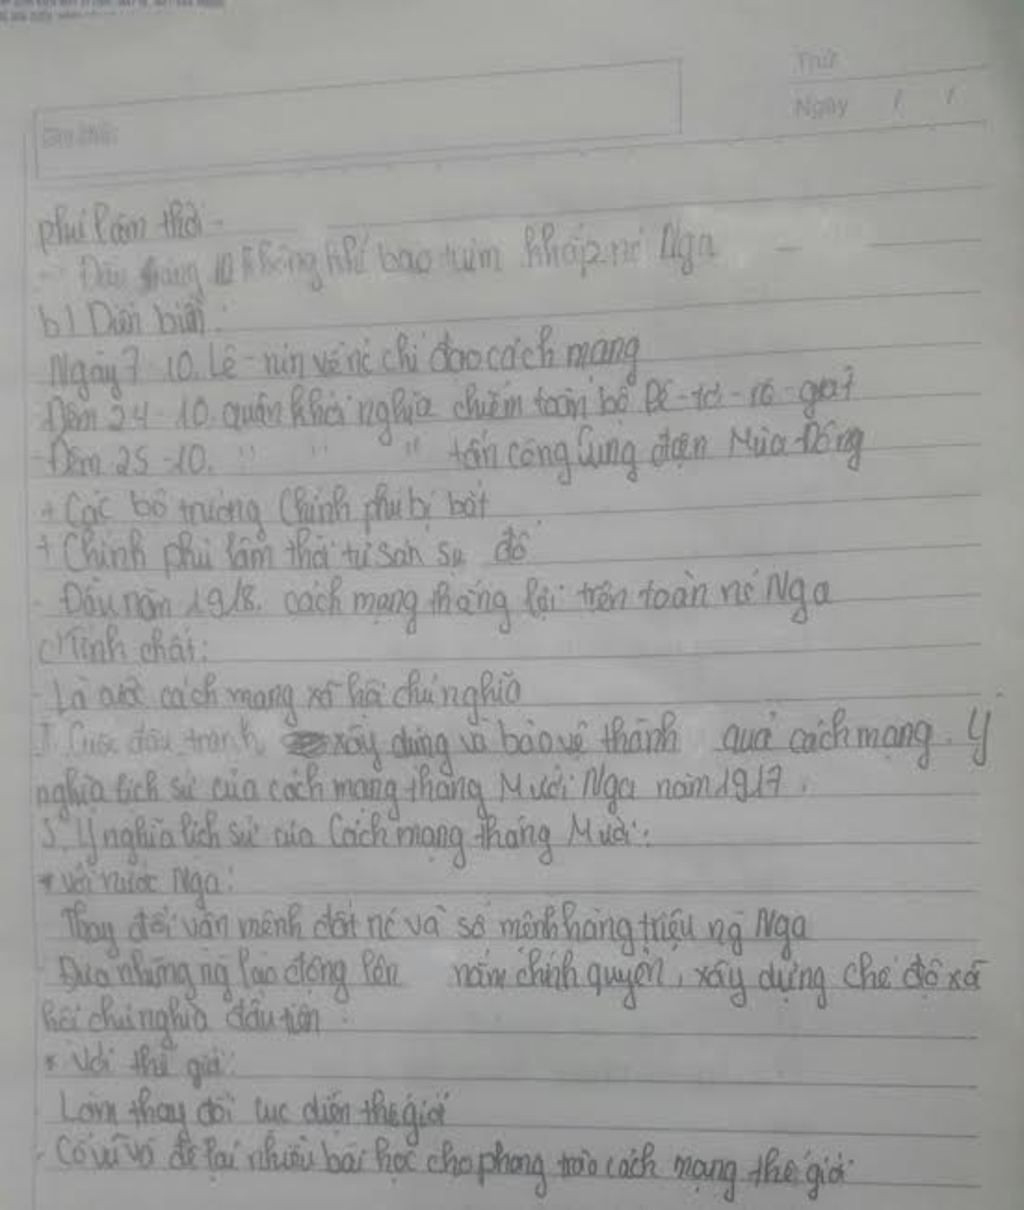 Thứ
Ngày / /
phủ lâm thời -
- Đầu tháng 10 không khí bao trùm khắp nc Nga
b) Diễn biến:
Ngày 7 10. Lê-nin về nc chỉ đạo cách mạng
Đêm 24-10. quân khởi nghĩa chiếm toàn bộ Pê-tơ-rô-grat
- Đêm 25-10. " " " tấn công Cung điện Mùa Đông
+ Các bộ trưởng Chính phủ bị bắt
+ Chính phủ lâm thời tư sản sụp đổ
- Đầu năm 1918. cách mạng thắng lợi trên toàn nc Nga
c) Tính chất:
- Là cuộc cách mạng xã hội chủ nghĩa
Cuộc đấu tranh xây dựng và bảo vệ thành quả cách mạng. Ý
nghĩa lịch sử của cách mạng tháng Mười Nga năm 1917.
Ý nghĩa lịch sử của Cách mạng tháng Mười:
* Với nước Nga:
Thay đổi vận mệnh đất nc và số mệnh hàng triệu ng Nga
- Đưa những ng lao động lên nắm chính quyền, xây dựng chế độ xã
hội chủ nghĩa đầu tiên
* Với thế giới:
Làm thay đổi cục diện thế giới
- Cổ vũ và để lại nhiều bài học cho phong trào cách mạng thế giới